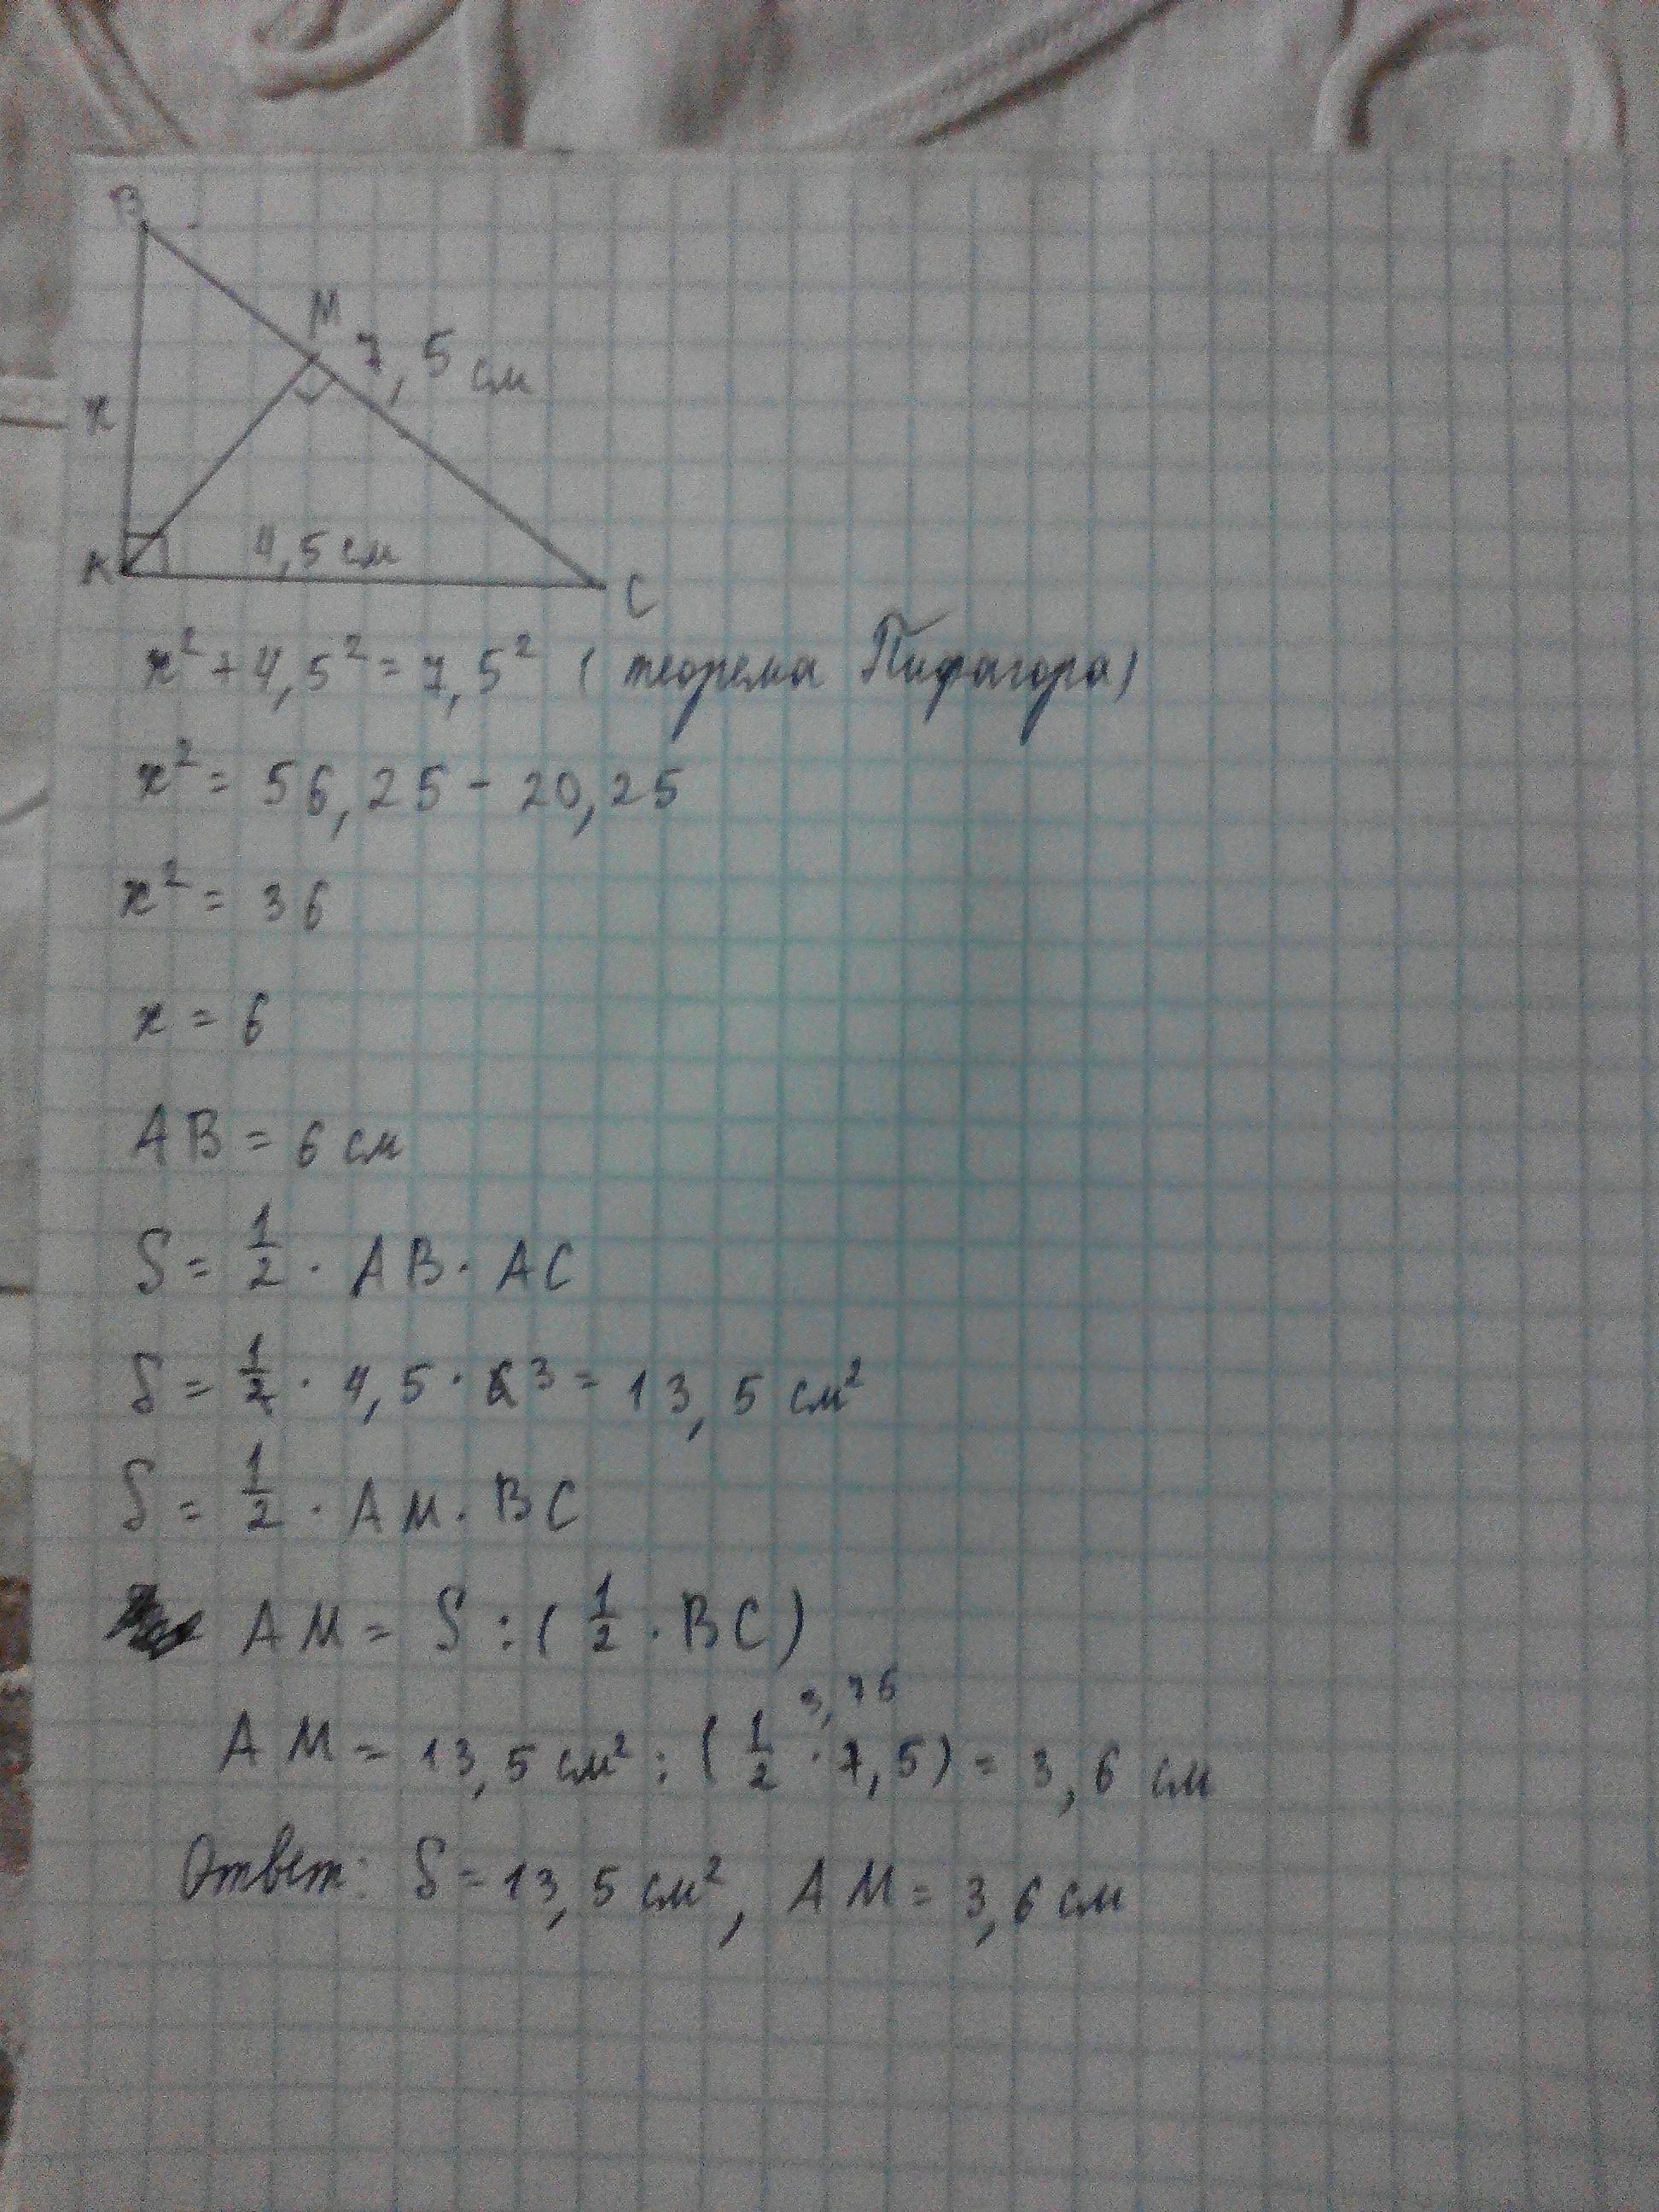 B
M
7,5 см
x
A
4,5 см
C
x² + 4,5² = 7,5² (теорема Пифагора)
x² = 56,25 - 20,25
x² = 36
x = 6
AB = 6 см
S = 1/2 · AB · AC
S = 1/2 · 4,5 · 6 3 = 13,5 см²
S = 1/2 · AM · BC
AM = S : (1/2 · BC)
3,75
AM = 13,5 см² : (1/2 · 7,5) = 3,6 см
Ответ: S = 13,5 см², AM = 3,6 см